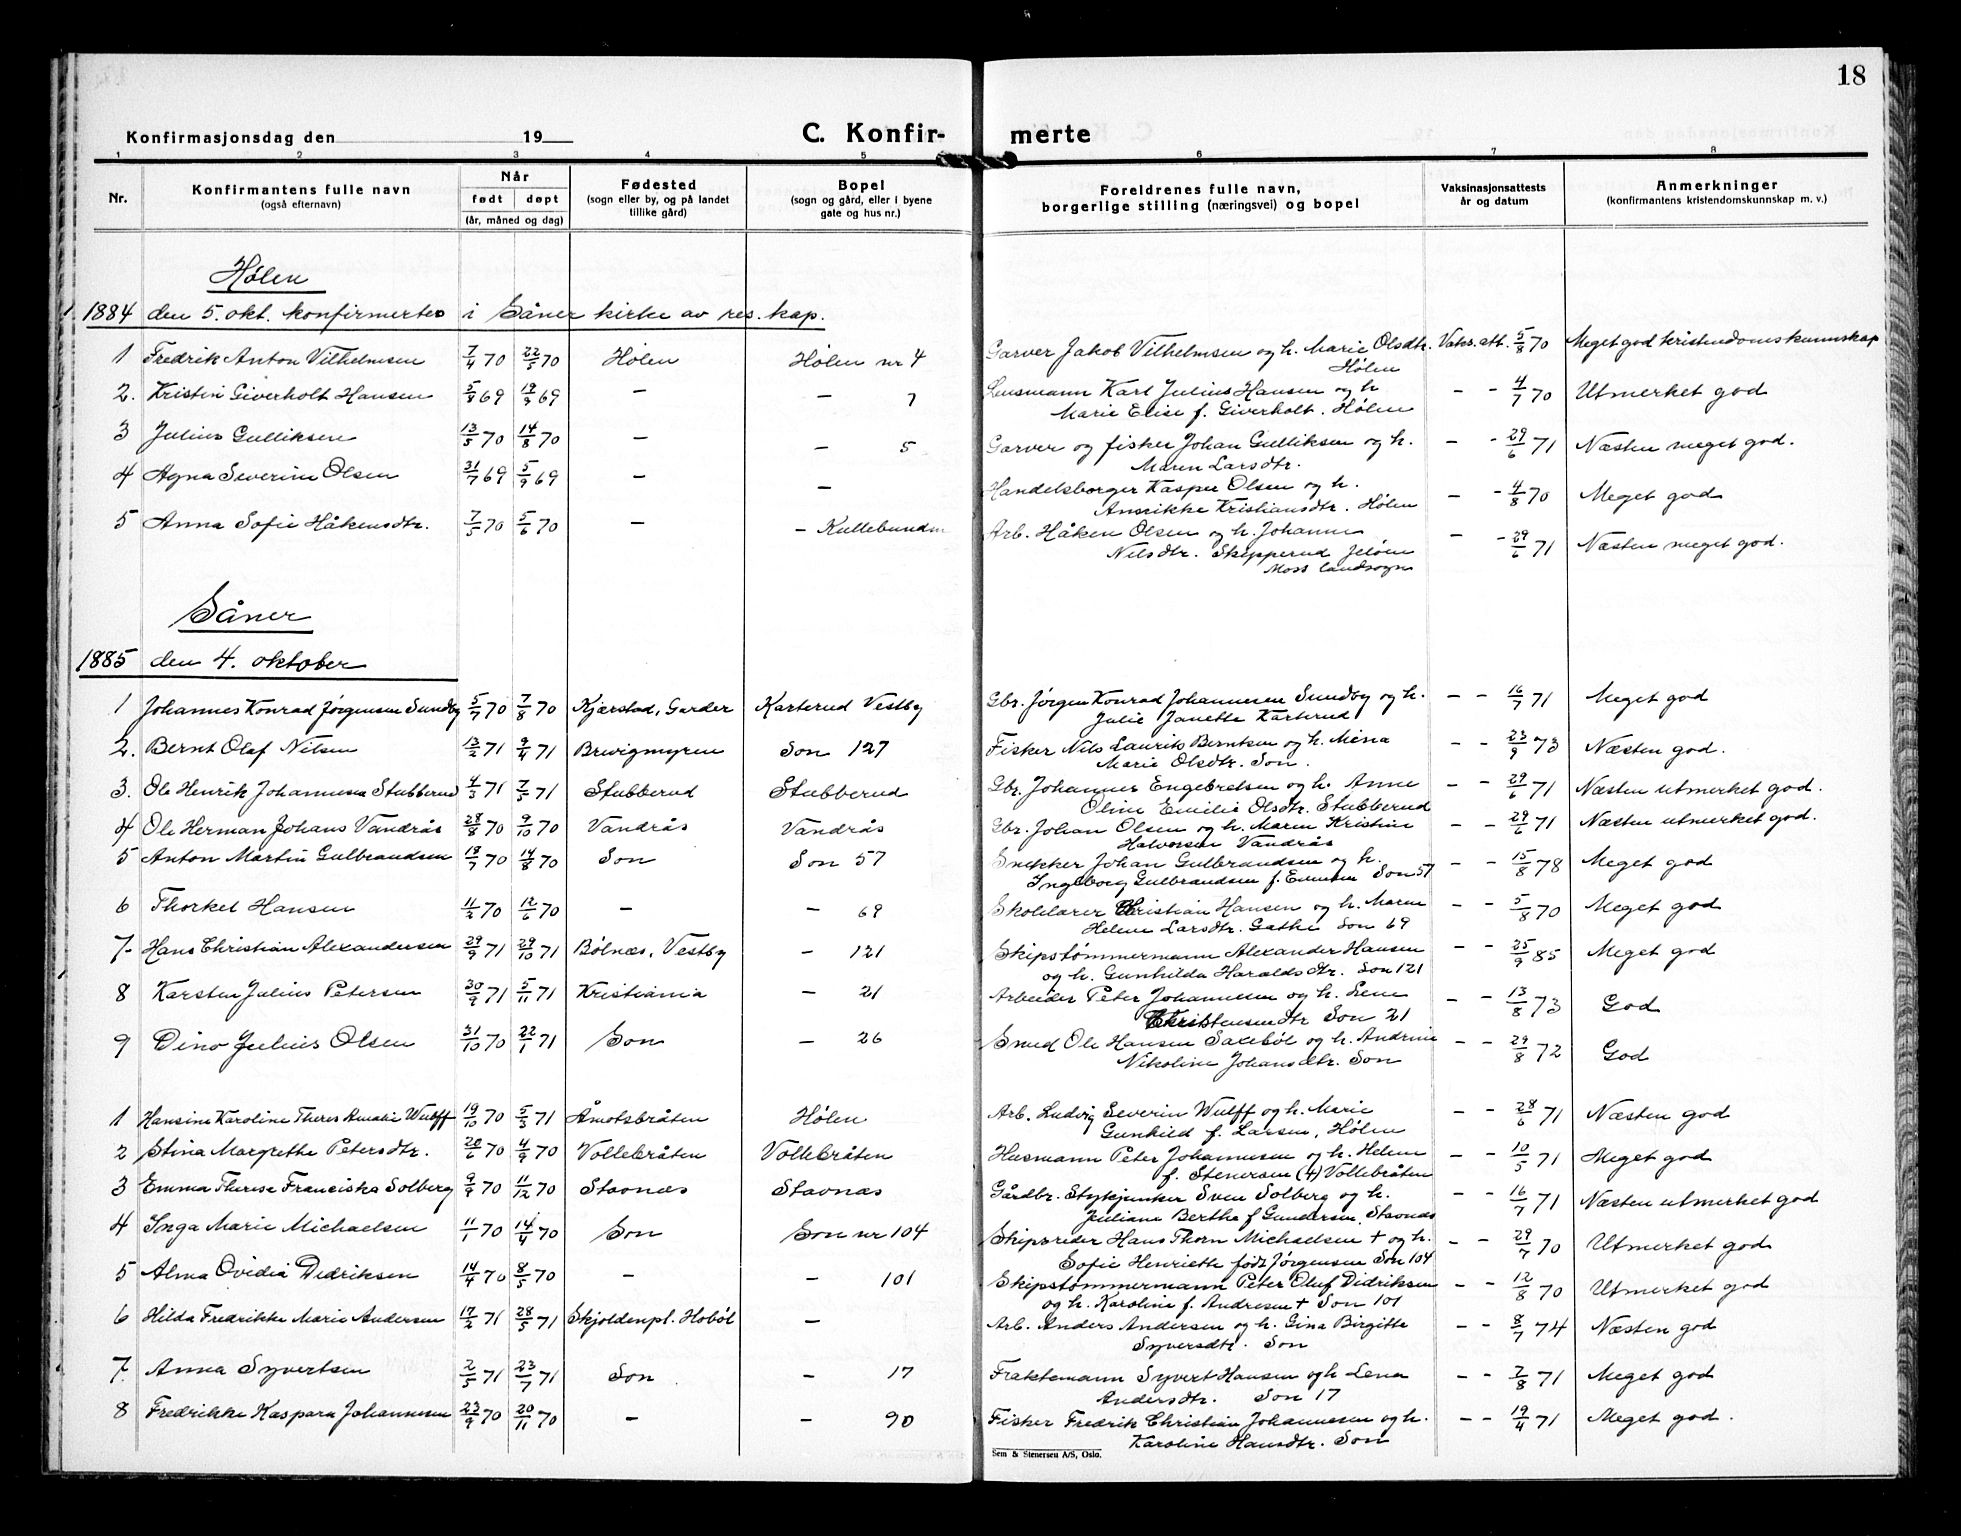 18
Konfirmasjonsdag den 19
C. Konfir- merte
1 2 3 4 5 6 7 8
Nr. Konfirmantens fulle navn (også efternavn) Når født døpt (år, måned og dag) Fødested (sogn eller by, og på landet tillike gård) Bopel (sogn og gård, eller i byene gate og hus nr.) Foreldrenes fulle navn, borgerlige stilling (næringsvei) og bopel Vaksinasjonsattests år og datum Anmerkninger (konfirmantens kristendomskunnskap m. v.)
Hølen
1884 den 5. okt. konfirmertes i Såner kirke av res. kap.
1 Fredrik Anton Vilhelmsen 7/4 70 22/5 70 Hølen Hølen nr 4 Garver Jakob Vilhelmsen og h. Marie Olsdtr. Vaks. att. 5/8 70 Meget god kristendomskunnskap
Hølen
2. Kristin Giverholt Hansen 5/8 69 19/9 69 — — 7 Lensmann Karl Julius Hansen og h. - - 4/7 70 Utmerket god
Marie Elise f. Giverholt. Hølen
3 Julius Gulliksen 13/5 70 14/8 70 — — 5 Garver og fisker Johan Gulliksen og h. - - 29/6 71 Næsten meget god.
Maren Larsdtr.
4 Agna Severine Olsen 31/7 69 5/9 69 — — Handelsborger Kasper Olsen og h. - - 4/8 70 Meget god
Anrikke Kristiansdtr. Hølen
5 Anna Sofie Håkensdtr. 7/5 70 5/6 70 — — Kullebunden Arb. Håken Olsen og h. Johanne - - 29/6 71 Næsten meget god.
Nilsdtr. Skipperud Jeløen
Moss landsogn
Såner
1885 den 4. oktober
1 Johannes Konrad Jørgensen Sundby 5/7 70 7/8 70 Kjærstad, Garder Karterud Vestby Gbr. Jørgen Konrad Johannesen Sundby og h. - - 16/7 71 Meget god
Julie Janette Karterud
2. Bernt Olaf Nilsen 13/2 71 9/4 71 Brevigmyren Son 127 Fisker Nils Laurits Berntsen og h. Mina - - 23/9 73 Næsten god.
Marie Olsdtr. Son.
3. Ole Henrik Johannesen Stubberud 4/3 71 7/5 71 Stubberud Stubberud Gbr. Johannes Engebretsen og h. Anne - - 29/6 71 Næsten utmerket god.
Oline Emilie Olsdtr. Stubberud
4 Ole Herman Johans Vandrås 28/8 70 9/10 70 Vandrås Vandrås Gbr. Johan Olsen og h. Maren Kristine - - 29/6 71 Næsten utmerket god.
Halvorsen Vandrås
5 Anton Martin Gulbrandsen 18/7 70 14/8 70 Son Son 57 Snekker Johan Gulbrandsen og h. - - 15/8 78 Meget god
Ingeborg Gulbrandsen f. Evensen Son 57
6 Thorkel Hansen 11/2 70 12/6 70 — — 69 Skolelærer Christian Hansen og h. Maren - - 5/8 70 Meget god
Helene Larsdtr. Gathe Son 69
7. Hans Christian Alexandersen 29/9 71 29/10 71 Bølnæs, Vestby — 121 Skipstømmermann Alexander Hansen - - 25/9 85 Meget god
og h. Gunhilda Haraldsdtr. Son 121
8 Karsten Julius Petersen 30/9 71 5/11 71 Kristiania — 21 Arbeider Peter Johannesen og h. Lene - - 13/8 73 God
Christensendtr Son 21
9 Dino Julius Olsen 31/10 70 22/1 71 Son — 26 Smed Ole Hansen Saxebøl og h. Andrine - - 29/8 72 God
Nikoline Johansdtr. Son
1 Hansine Karoline Theres Amalie Wulff 19/10 70 5/3 71 Åmotsbråten Hølen Arb. Ludvig Severin Wulff og h. Marie - - 28/6 71 Næsten god
Gunhild f. Larsen, Hølen
2 Stina Margrethe Petersdtr. 20/6 70 4/9 70 Vollebråten Vollebråten Husmann Peter Johannesen og h. Helene - - 10/5 71 Meget god
f. Stenersen (+) Vollebråten
3 Emma Therese Franciska Solberg 9/9 70 11/12 70 Stavnæs Stavnæs Gårdbr. Stykjunker Sven Solberg og h. - - 16/7 71 Næsten utmerket god
Juliane Berthe f Gundersen, Stavnæs
4 Inga Marie Michaelsen 11/1 70 14/4 70 Son Son nr 104 Skipsreder Hans Thorn Michaelsen + og h. - - 29/7 70 Utmerket god
Sofie Henriette født Jørgensen Son 104
5 Alma Ovidia Didriksen 14/4 70 8/5 70 — — 101 Skipstømmermann Peter Oluf Didriksen - - 12/8 70 Utmerket god
og h. Karoline f. Andresen + Son 101
6 Hilda Fredrikke Marie Andersen 17/2 71 28/5 71 Skjoldenpl. Hobøl — Arb. Anders Andersen og h. Gina Birgitte - - 8/7 74 Næsten god
Syversdtr. Son
7. Anna Syvertsen 2/5 71 23/7 71 Son — 17 Fraktemann Syvert Hansen og h Lena - - 7/8 71 Meget god
Andersdtr. Son 17
8 Fredrikke Kaspara Johannesen 23/9 70 20/11 70 — — 90 Fisker Fredrik Christian Johannesen og h. - - 19/4 71 Meget god.
Karoline Hansdtr. Son
Sem & Stenersen A/S, Oslo.